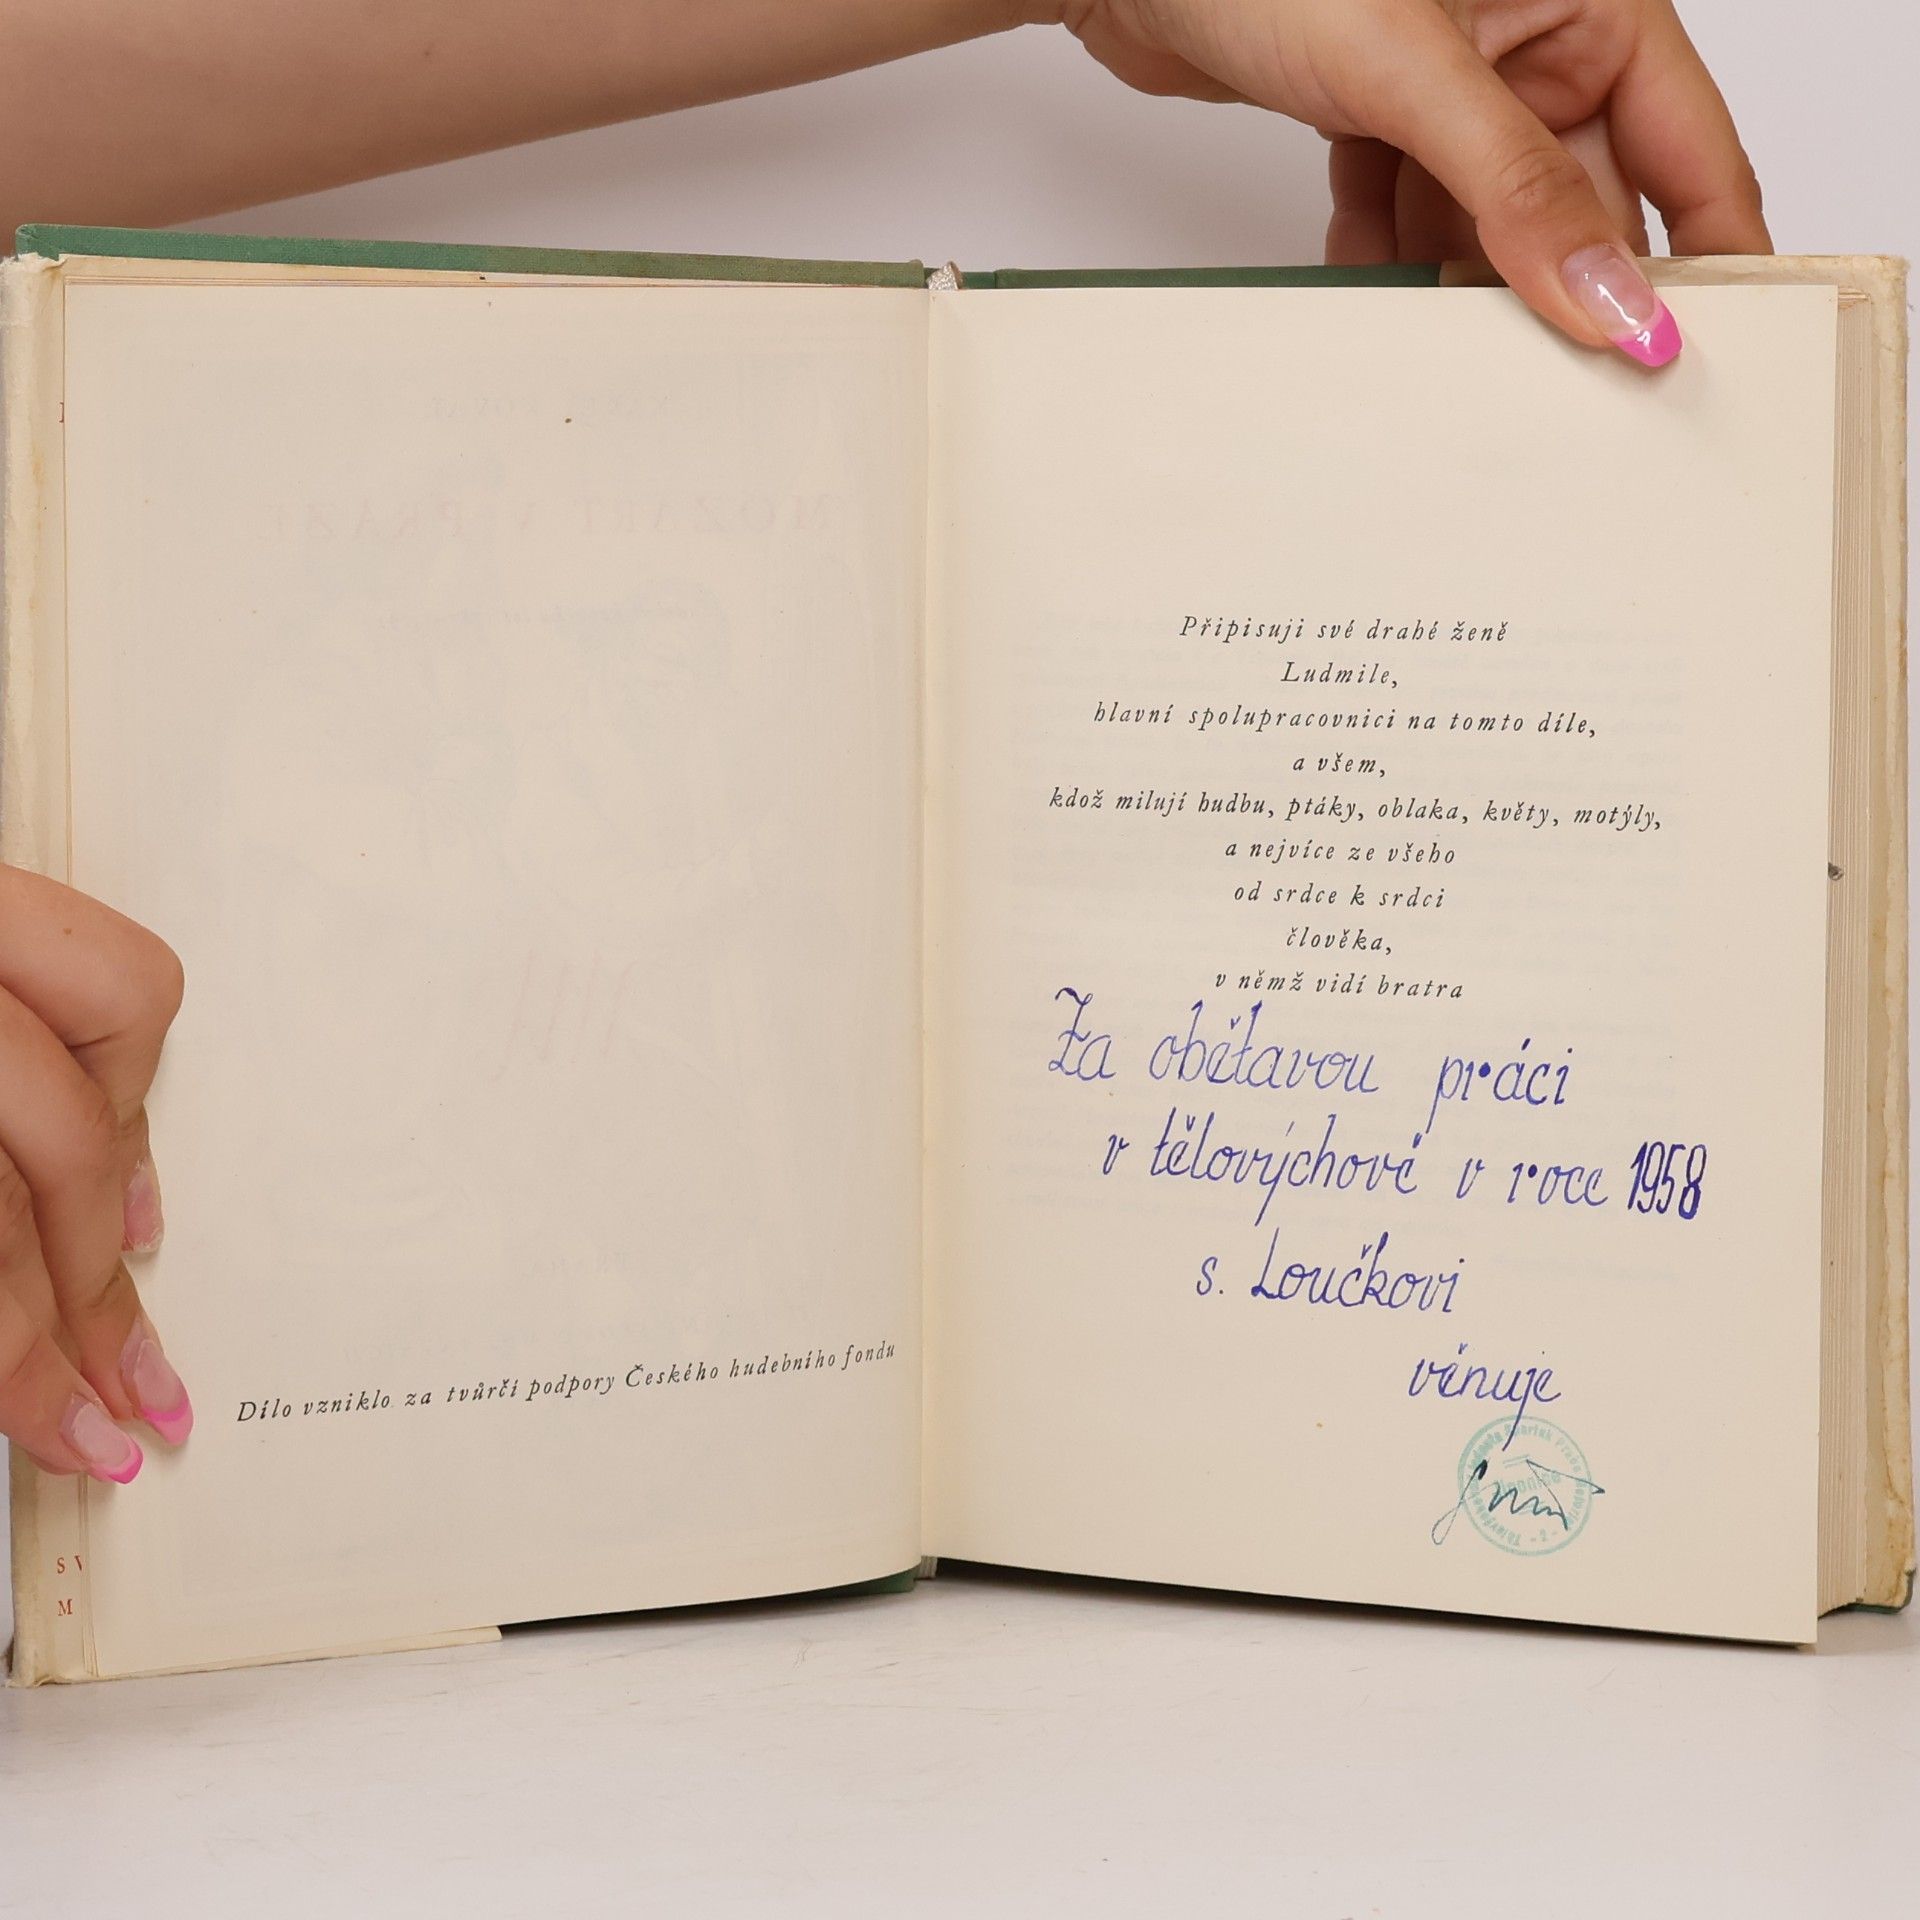 Dílo vzniklo za tvůrčí podpory Českého hudebního fondu
Připisuji své drahé ženě
Ludmile,
hlavní spolupracovnici na tomto díle,
a všem,
kdož milují hudbu, ptáky, oblaka, květy, motýly,
a nejvíce ze všeho
od srdce k srdci
člověka,
v němž vidí bratra
Za obětavou práci
v tělovýchově v roce 1958
s. Loučkovi
věnuje
MOZART V PRAZE
S V
M